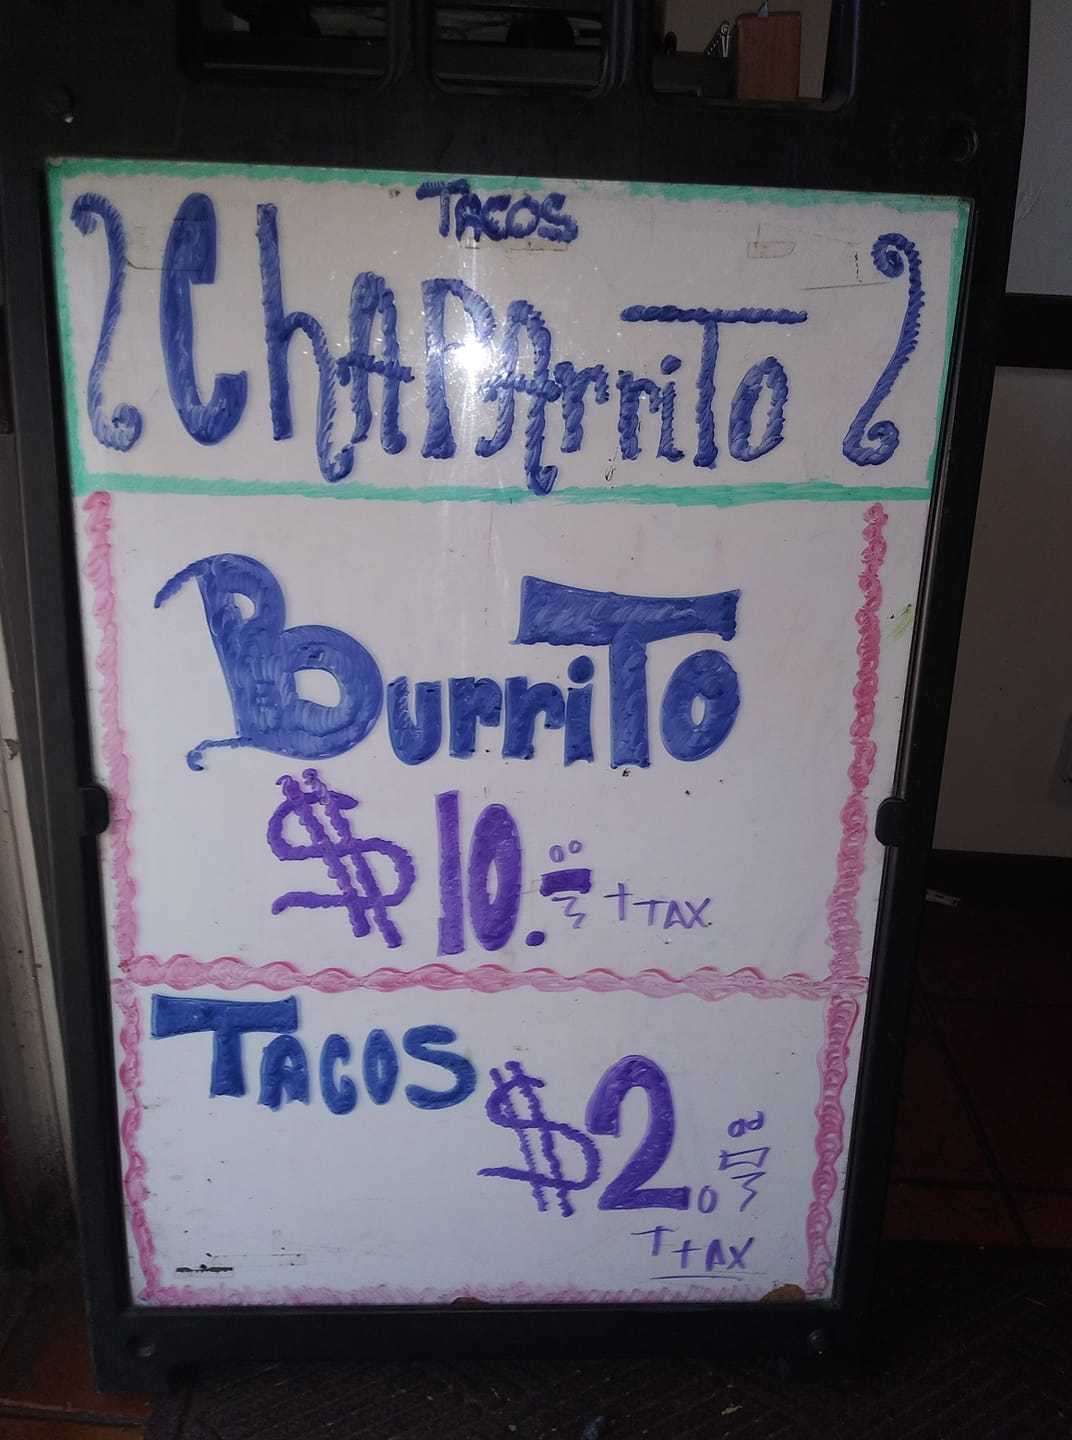 TACOS
ChAPArriTo
BurriTo
$10.00 + TAX
TACOS
$2.00
+ TAX